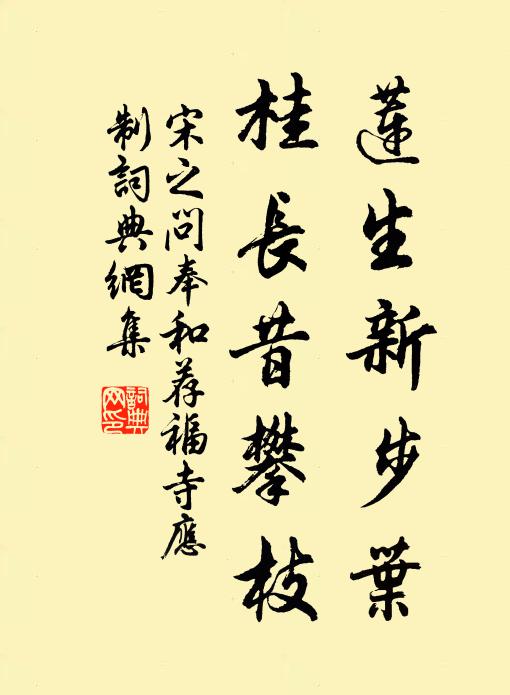 蓮生新步葉
桂長昔攀枝
宋之问奉和荐福寺應
制詞典網集
詞典
网印